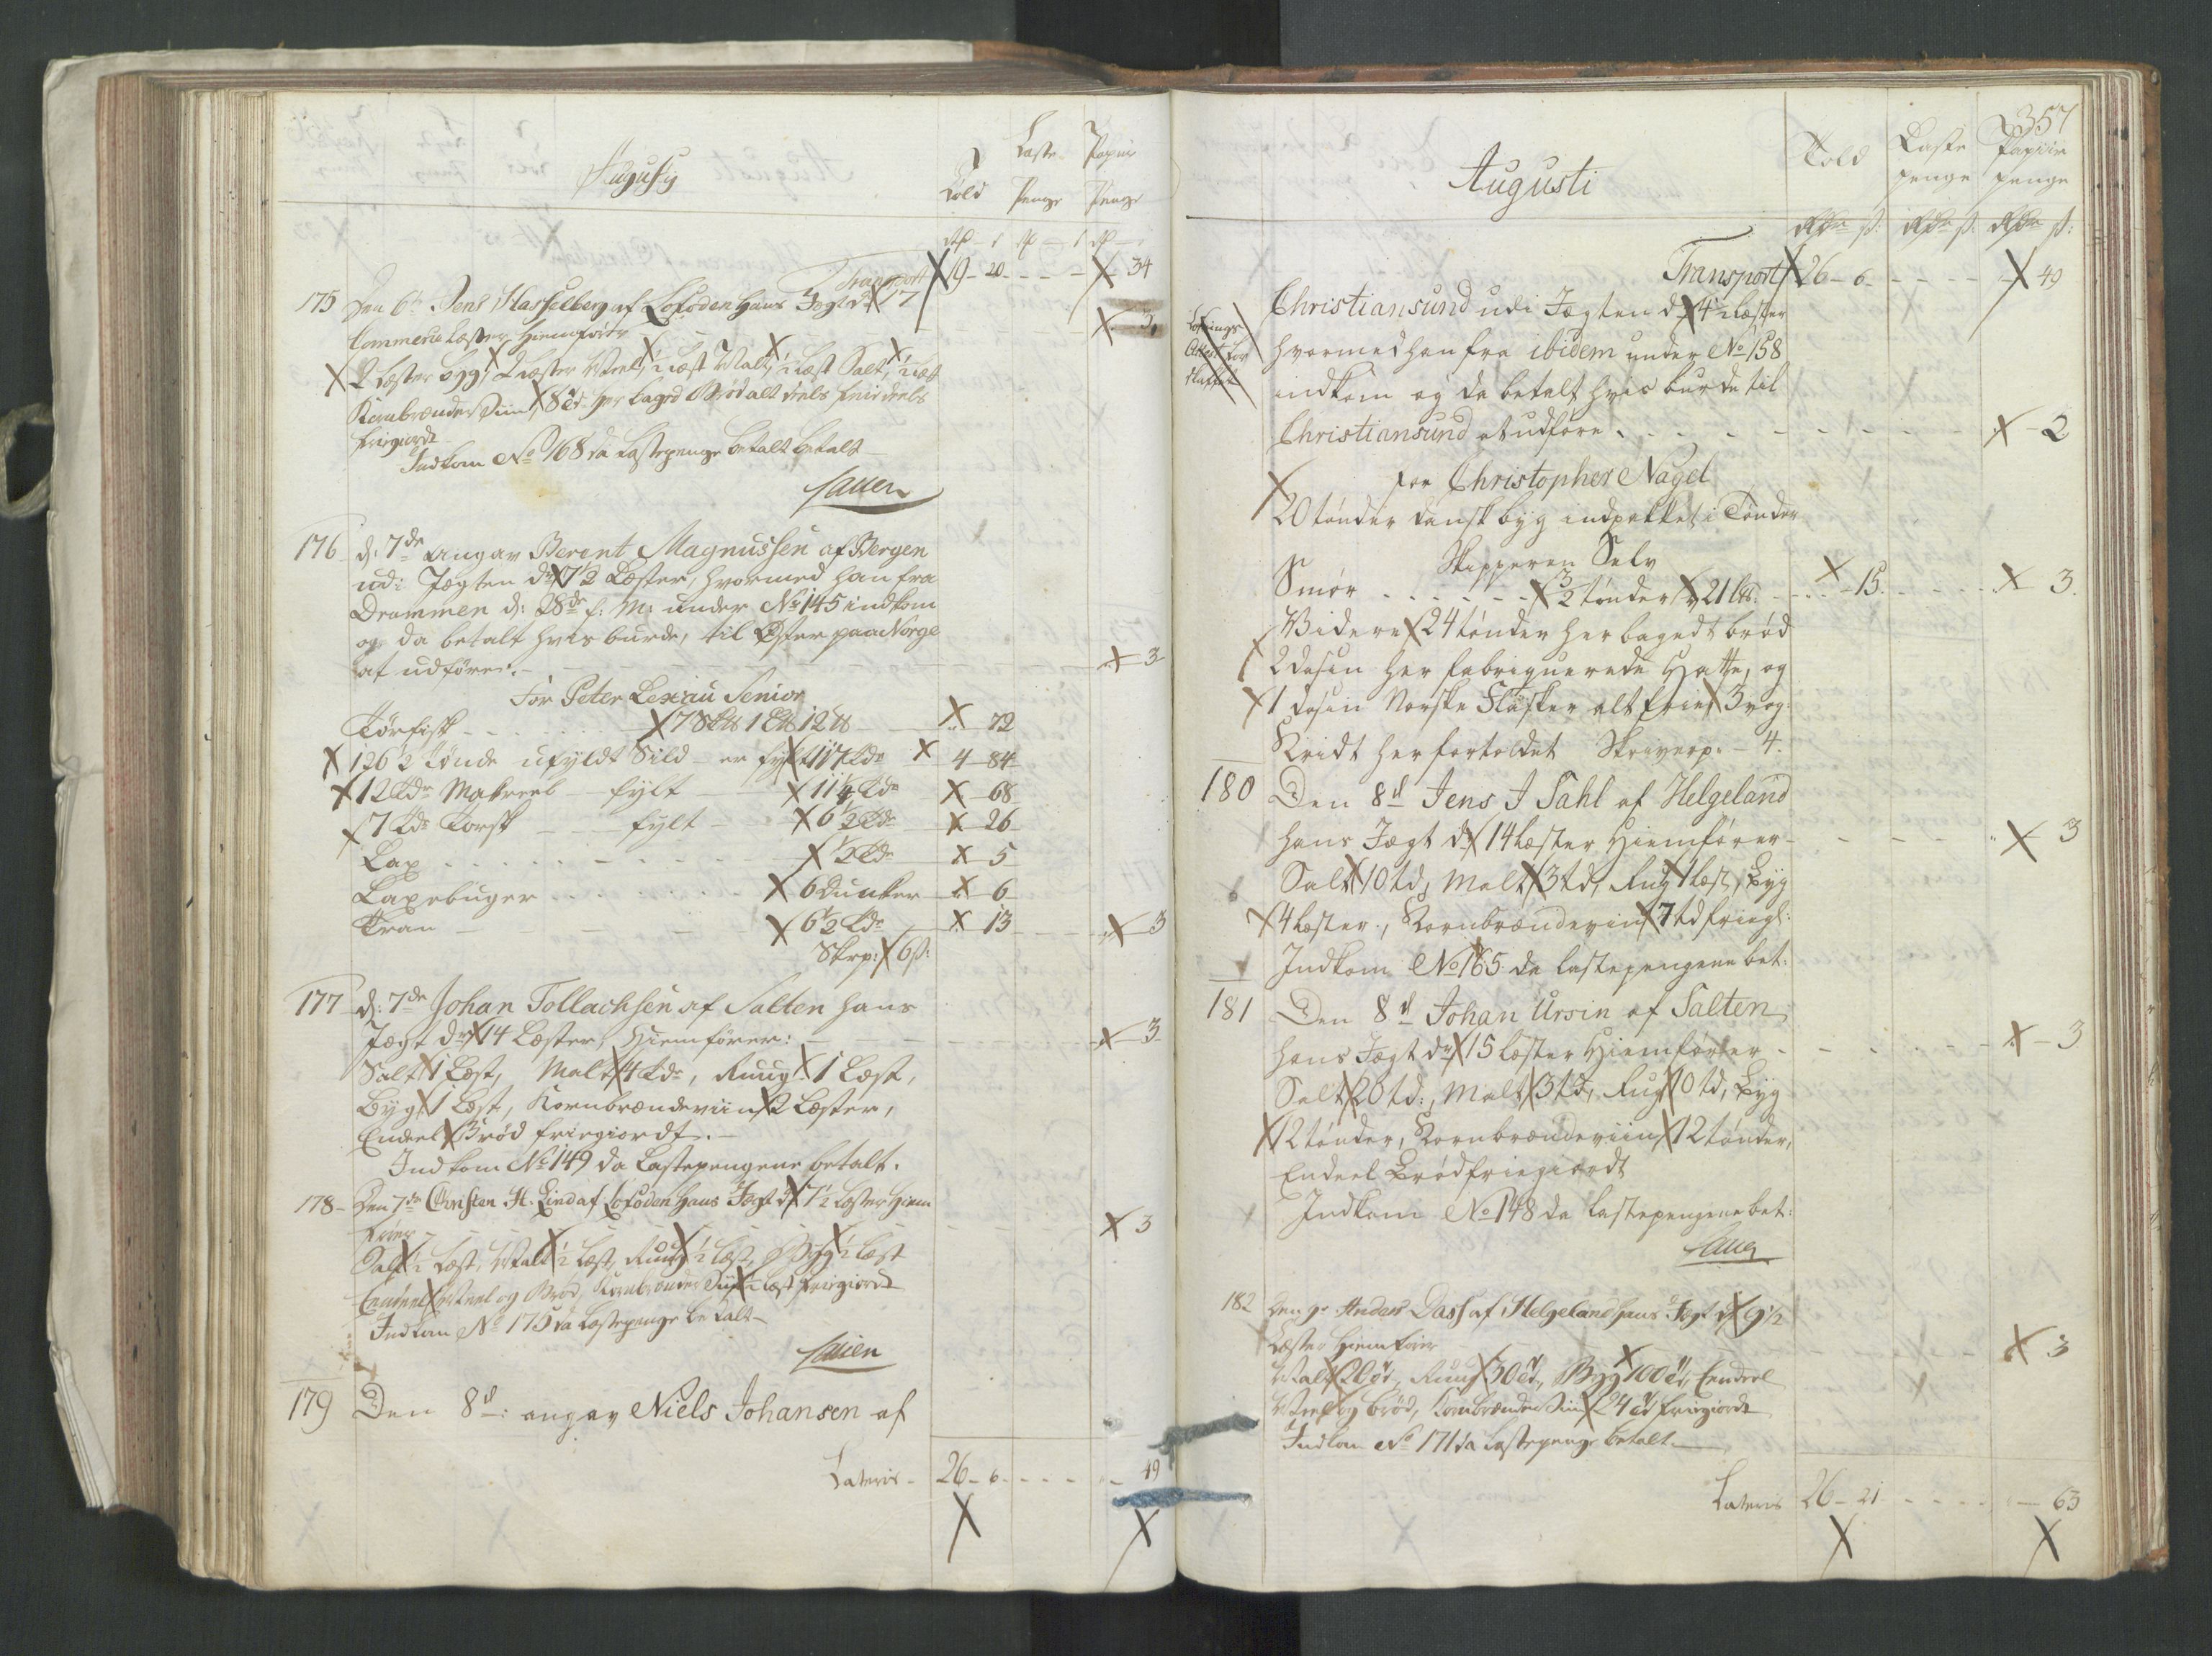 Augusty
Told
Laste Penge
Papiir Penge
Transport 19-20 - - - 34
175 Den 6te Jens Hasselberg af Lofoden hans Jægt d: 17
Commerce Læster Hiemfører - 3
2 Læster byg, 2 Læster Meel, 1 Læst Malt, 1 Læst Salt, 1 Læst
Kornbrændeviin, 8 td: her baged Brød alt deels friedeels
friegiordt
Indkom No 168 da Lastepenge betalt betalt
176 d: 7de angav Berent Magnussen af Bergen
udi Jægten dr: 7 1/2 Læster, hvormed han fra
Drammen d: 28de f: M: under No 145 indkom
og da betalt hvis burde, til Øster paa Norge
at udføre. - 3
For Peter Lexau Senior
Tørfisk - 7 Sk℔ 1 L℔ 12 ℔ - 72
126 1/2 Tønde ufyldt Sild - er fyldt 117 Tdr 4-84
12 Tdr Makreel - fylt - 11 1/4 Tdr - 68
7 Tdr Torsk - fylt - 6 1/2 Tdr - 26
Lax - 1/2 Tde - 5
Laxebuger - 6 Dunker - 6
Tran - 6 1/2 Tdr - 13 - 3
Skrp: 6 ß:
177 d: 7de Johan Tollachsen af Salten hans
Jægt dr: 14 Læster, Hiemfører: - 3
Salt 1 Læst, Malt 4 Tdr, Ruug 1 Læst,
Byg 1 Læst, Kornbrændeviin 2 Læster,
Endeel Brød friegiordt.
Indkom No 149 da Lastepengene betalt.
178 - Den 7de Christen H. Lind af Lofoden hans Jægt d: 7 1/2 Læster Hiem
fører - 3
Salt 1 Læst, Malt 1 Læst, Ruug 1 Læst, Byg 1 Læst
Eendeel Meel og Brød, Kornbrændeviin 1 Læst friegiordt
Indkom No 175 da Lastepenge betalt -
179 Den 8d: angav Niels Johansen af
Lateris - 26-6 - - - 49
357
Augusti
Told
Laste penge
Papiir penge
Rdr ß: Rdr ß: Rdr ß:
Transport 26-6 - - - 49
Christiansund udi Jægten d: 4 1/2 Læster
hvormed han fra ibidem under No 158
indkom og da betalt hvis burde til
Christiansund at udføre - 2
for Christopher Nagel
20 tønder dansk byg indpakket i Tønder
Skipperen Selv
Smør - 3/2 tønder 21 l℔: - 15 - 3.
Videre 24 tønder her bagedt brød
2 dosin her fabriquerede Hatte, og
1 dosin Norske Flasker alt frie 3 vog
Kridt her fortoldet Skriverp. - 4.
180 Den 8d Jens J Dahl af Helgeland
hans Jægt d: 14 læster Hiemfører - 3
Salt 10 td, Malt 3 td, Rug 1 læst, Byg
4 læster, Kornbrændeviin 7 td friegl:
Indkom No 165 da lastepengene bet:
181 Den 8d Johan Ursin af Salten
hans Jægt dr: 15 læster Hiemfører - 3
Salt 20 td:, Malt 3 td, Rug 10 td, Byg
12 tønder, Kornbrændeviin 12 tønder,
Endeel Brød friegiordt
Indkom No 148 da lastepengene bet:
182 Den 9de Anders Dass af Helgeland hans Jægt d: 9 1/2
Læster Hiemfører - 3
Malt 20 td, Ruug 30 td, Byg 100 td, Eendeel
Meel og brød, Kornbrændeviin 24 td friegiordt
Indkom No 171 da Lastepenge betalt.
Lateris 26-21 - - - 63